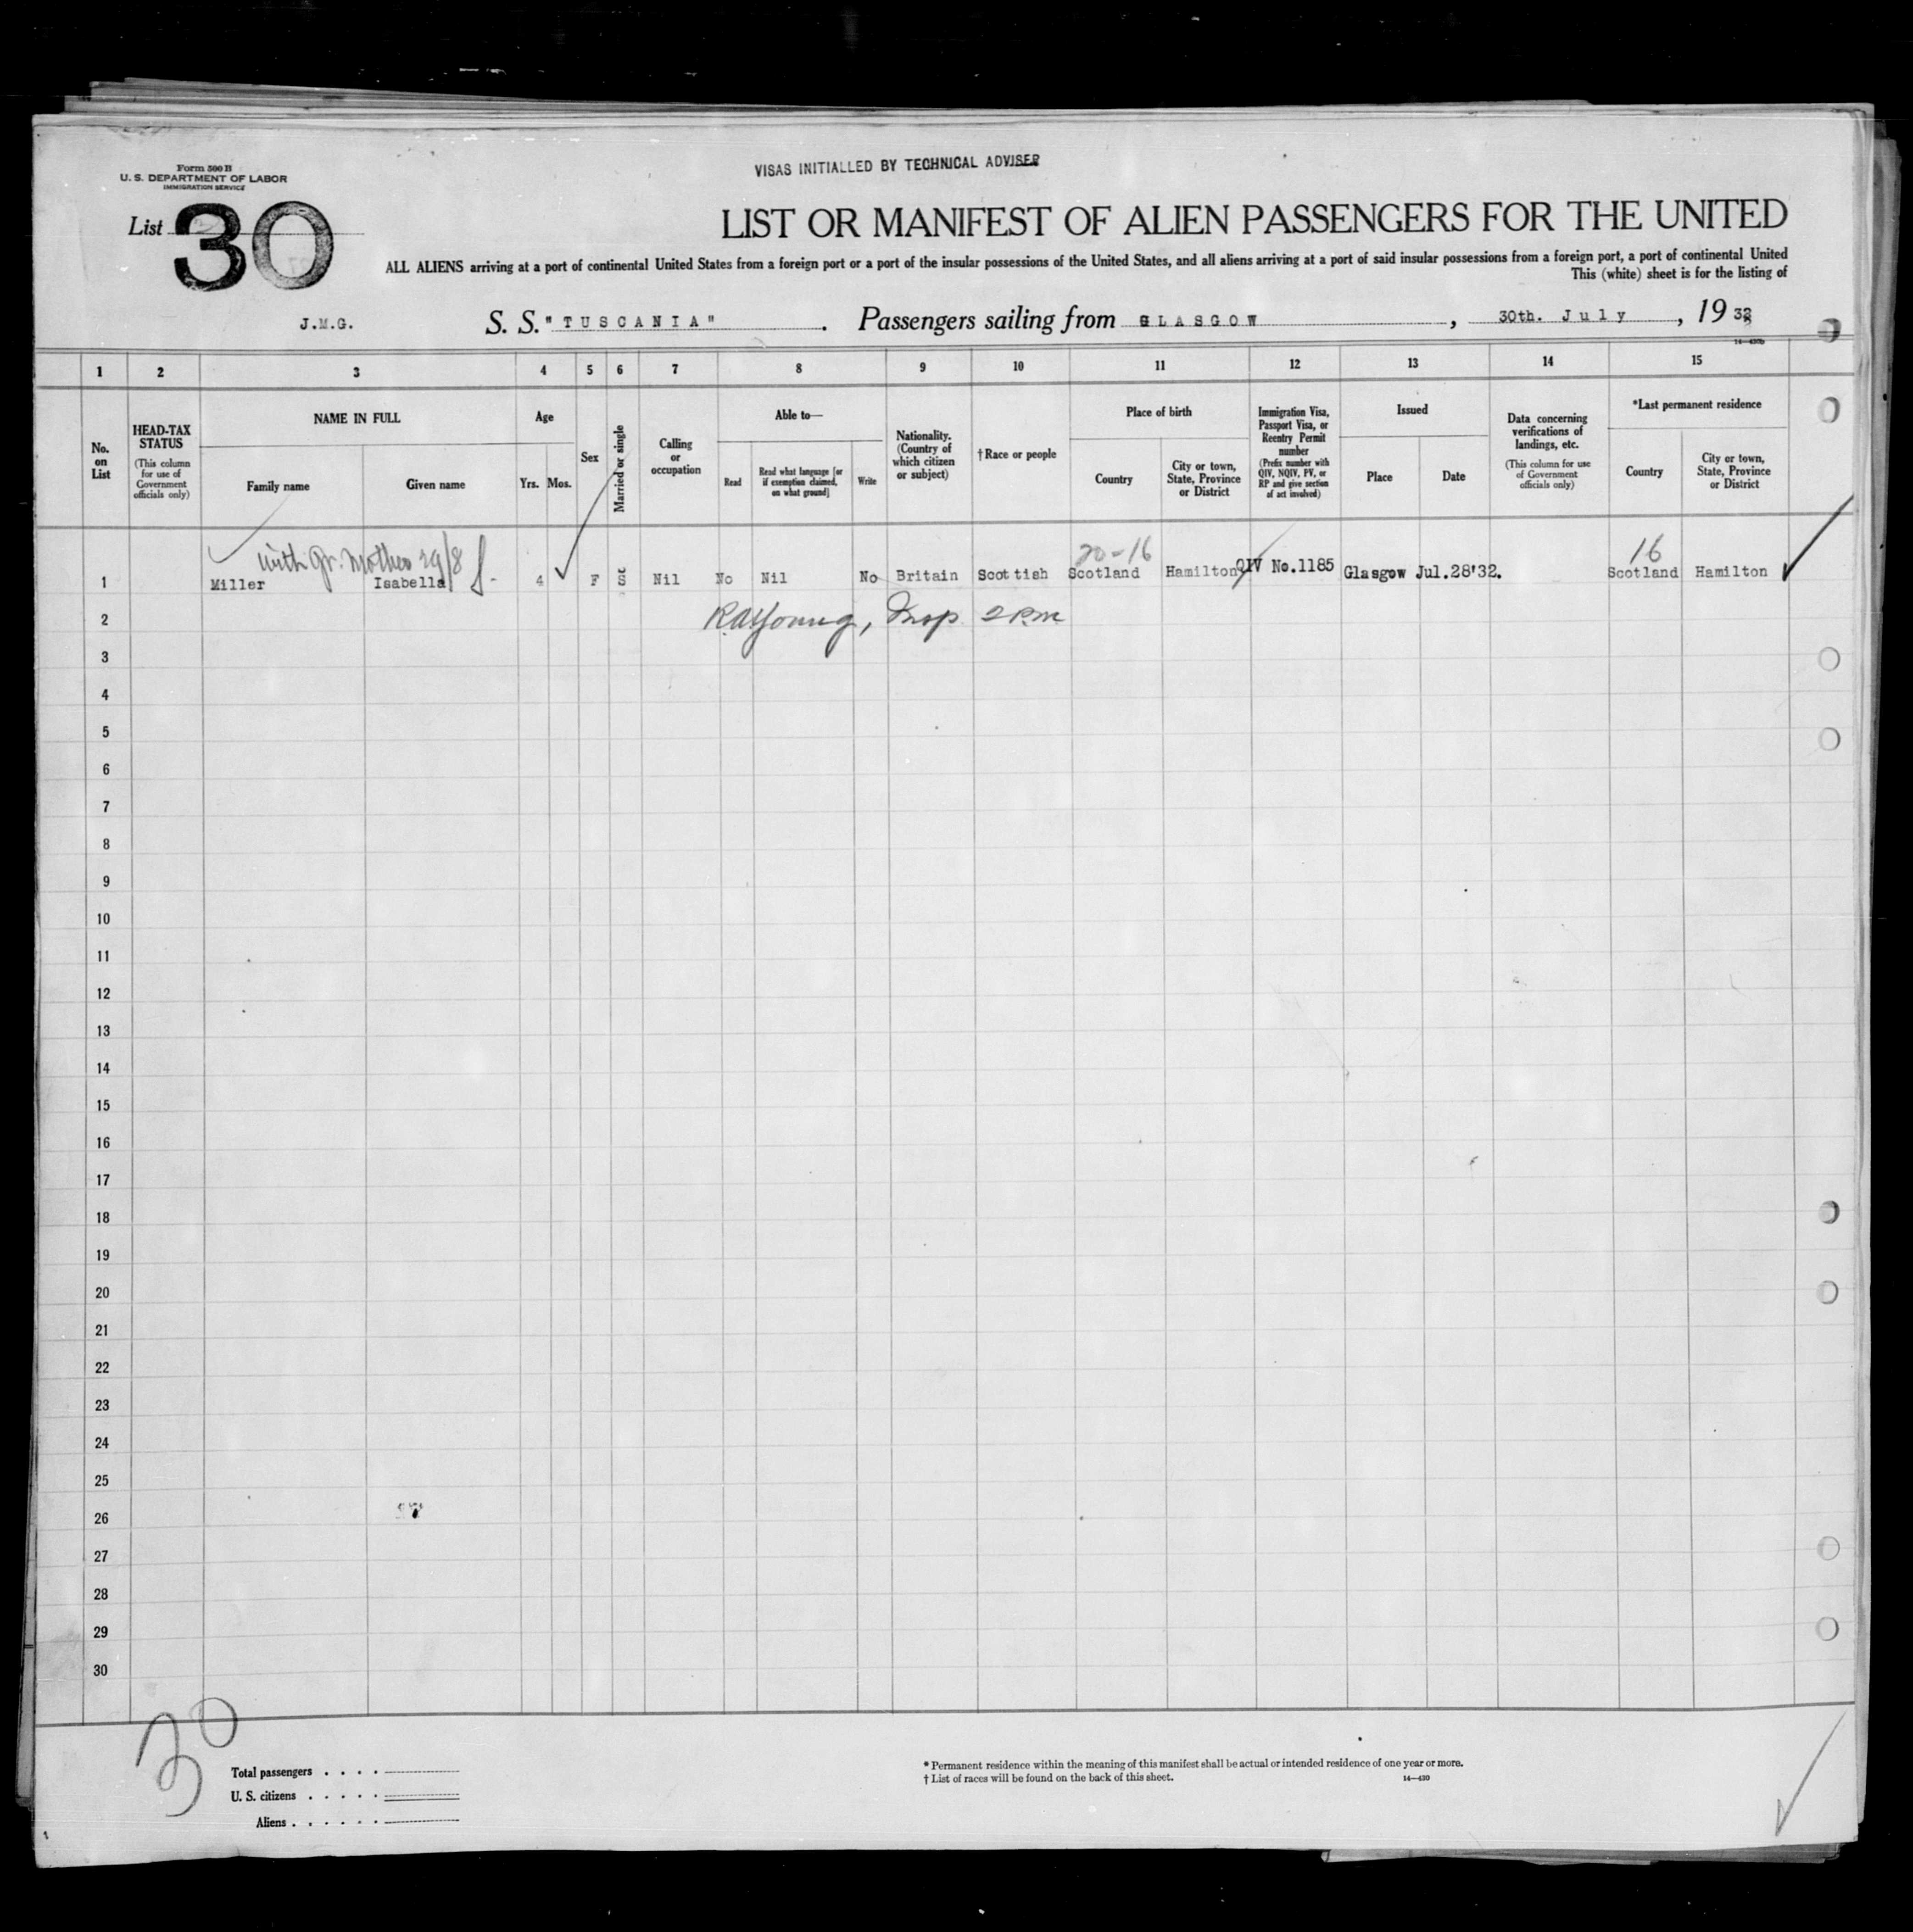 Form 500 B
U. S. DEPARTMENT OF LABOR
IMMIGRATION SERVICE
VISAS INITIALLED BY TECHNICAL ADVISER
List 30
LIST OR MANIFEST OF ALIEN PASSENGERS FOR THE UNITED
ALL ALIENS arriving at a port of continental United States from a foreign port or a port of the insular possessions of the United States, and all aliens arriving at a port of said insular possessions from a foreign port, a port of continental United
This (white) sheet is for the listing of
J.M.G. S. S. "TUSCANIA". Passengers sailing from GLASGOW, 30th. July, 1932
1 2 3 4 5 6 7 8 9 10 11 12 13 14 15
No. on List
HEAD-TAX STATUS
(This column for use of Government officials only)
NAME IN FULL
Family name Given name
Age
Yrs. Mos.
Sex
Married or single
Calling or occupation
Able to—
Read
Read what language [or if exemption claimed, on what ground]
Write
Nationality. (Country of which citizen or subject)
†Race or people
Place of birth
Country
City or town, State, Province or District
Immigration Visa, Passport Visa, or Reentry Permit number
(Prefix number with QIV, NQIV, PV, or RP and give section of act involved)
Issued
Place Date
Data concerning verifications of landings, etc.
(This column for use of Government officials only)
*Last permanent residence
Country
City or town, State, Province or District
with Gr. Mother 29/8
20-16
16
1 Miller Isabella 4 F Nil No Nil No Britain Scottish Scotland Hamilton QIV No.1185 Glasgow Jul.28'32. Scotland Hamilton
2 Young, Insp 2 P.M.
3
4
5
6
7
8
9
10
11
12
13
14
15
16
17
18
19
20
21
22
23
24
25
26
27
28
29
30
30
Total passengers
U. S. citizens
Aliens
* Permanent residence within the meaning of this manifest shall be actual or intended residence of one year or more.
† List of races will be found on the back of this sheet.
14—430